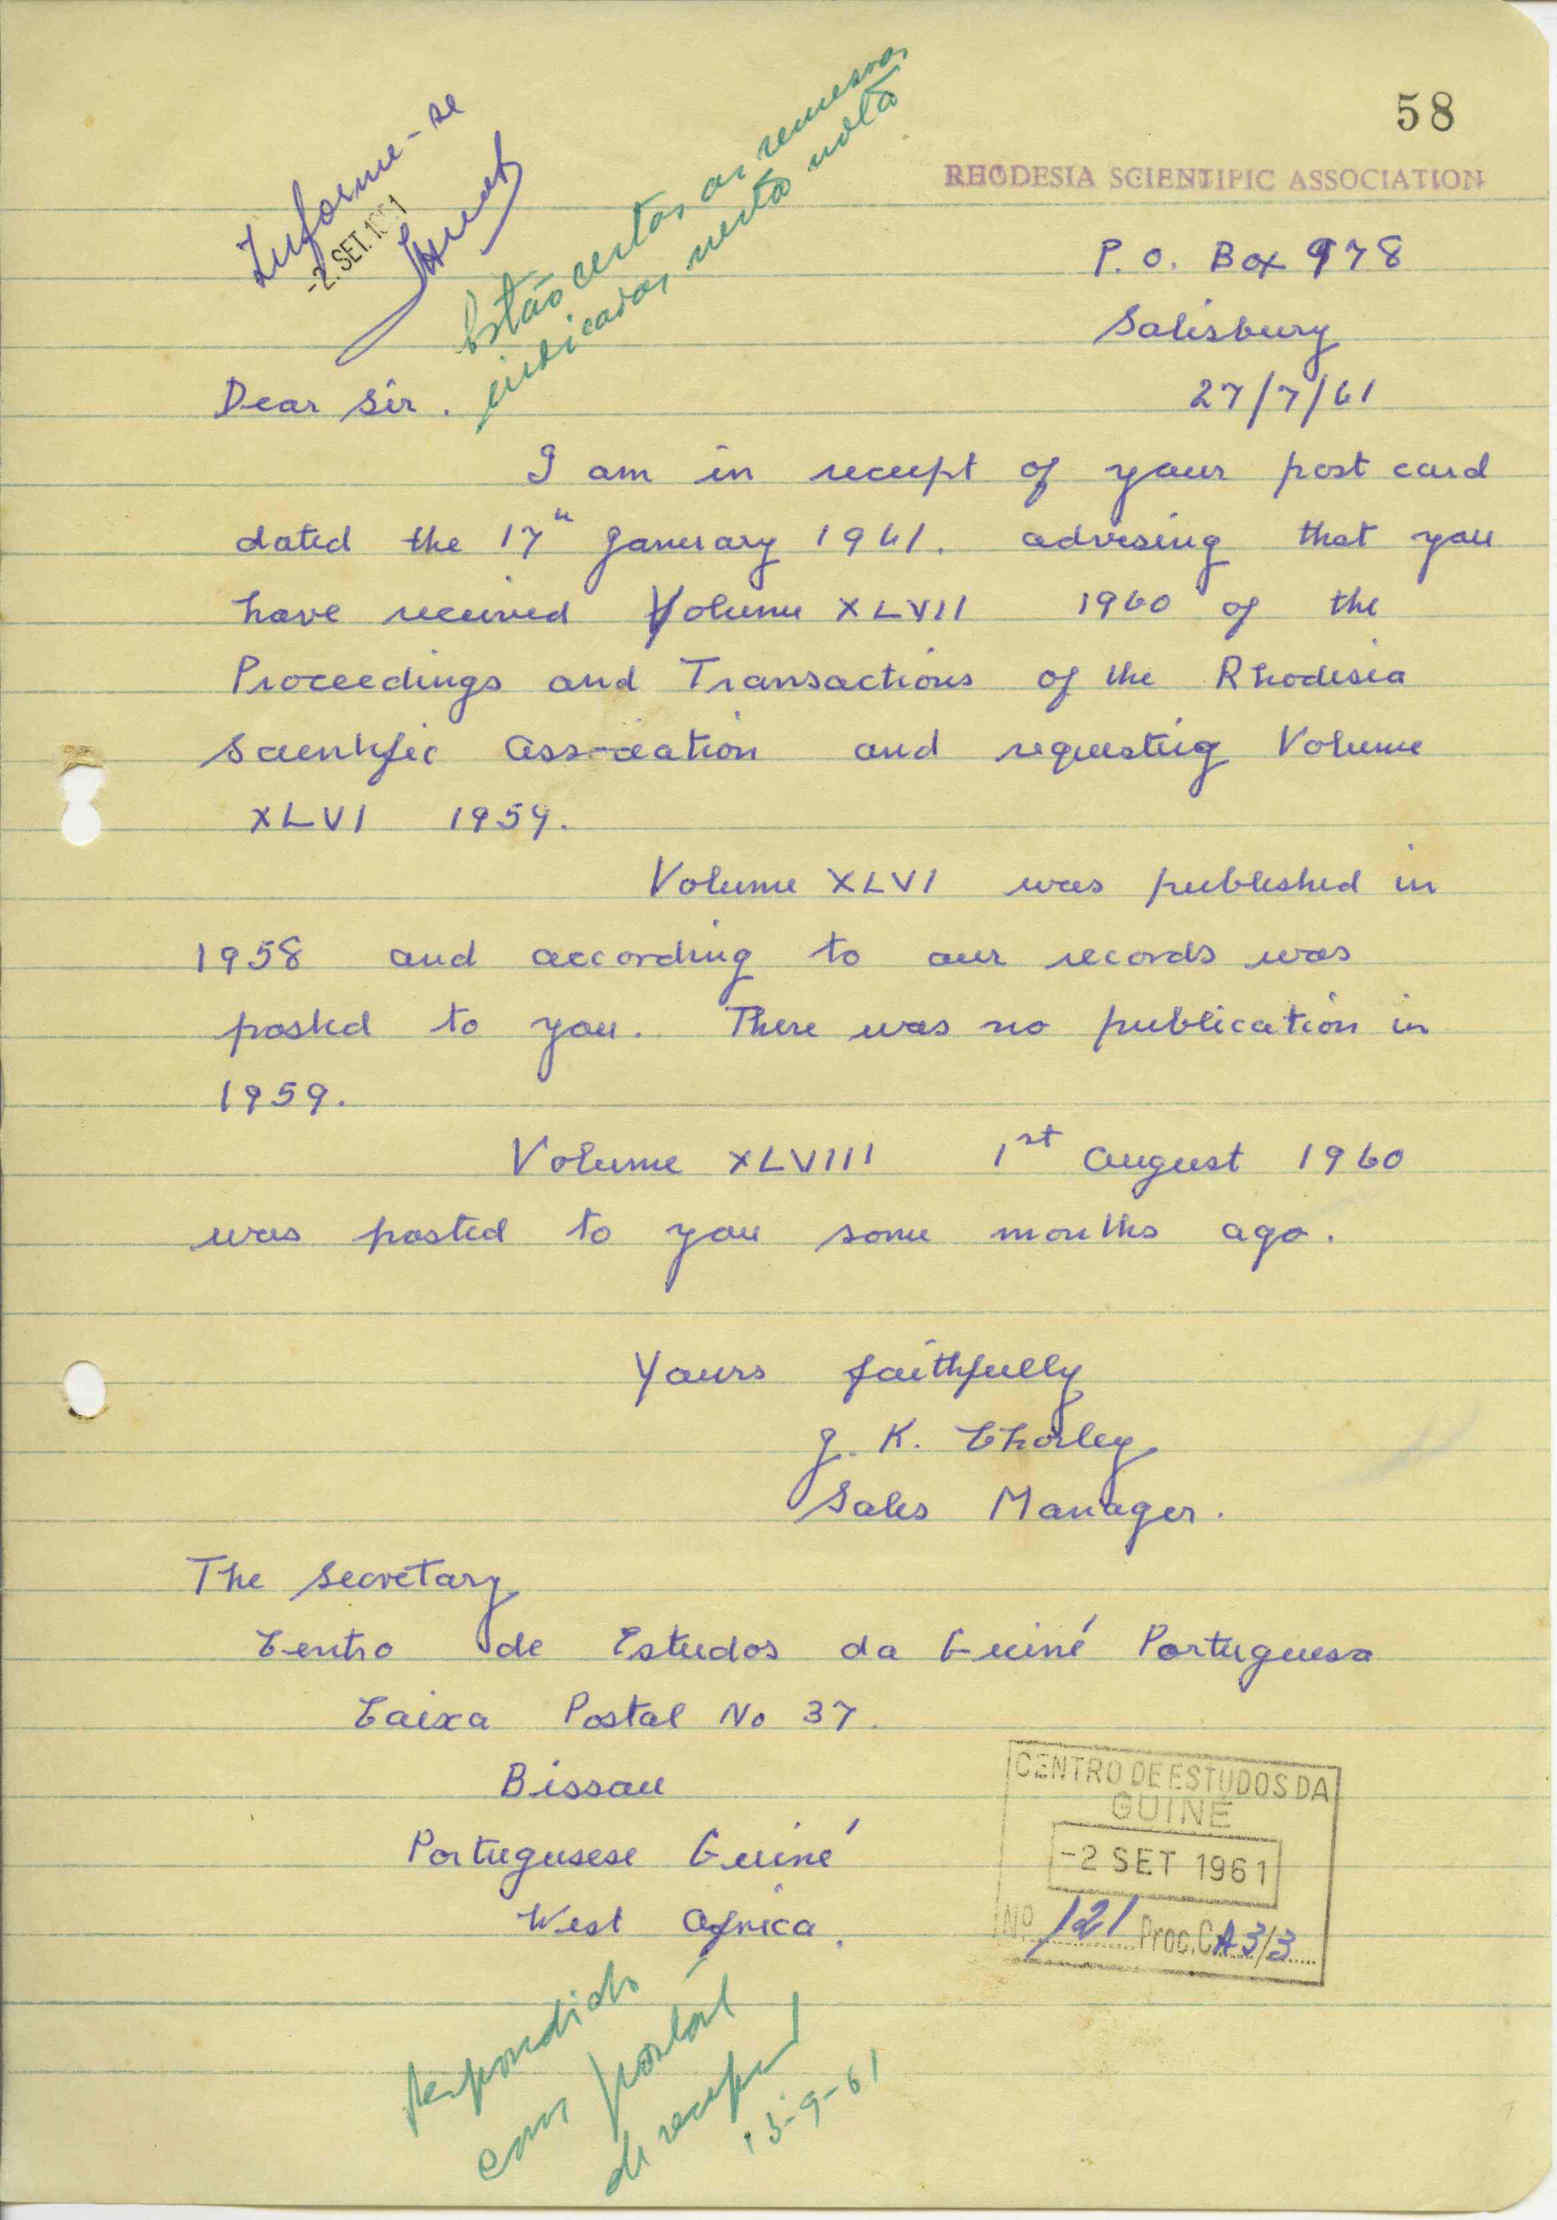 58
RHODESIA SCIENTIFIC ASSOCIATION
Informe-se
-2. SET. 1961
Estão certas as remessas
indicadas nesta nota
P. O. Box 978
Salisbury
27/7/61
Dear Sir.
I am in receipt of your post card
dated the 17th January 1961. advising that you
have received Volume XLVII 1960 of the
Proceedings and Transactions of the Rhodesia
Scientific Association and requesting Volume
XLVI 1959.
Volume XLVI was published in
1958 and according to our records was
posted to you. There was no publication in
1959.
Volume XLVIII 1st August 1960
was posted to you some months ago.
Yours faithfully
J. K. Chorley
Sales Manager.
The Secretary
Centro de Estudos da Guiné Portuguesa
Caixa Postal No 37.
Bissau
Portugusese Guiné
West Africa.
CENTRO DE ESTUDOS DA
GUINÉ
-2 SET 1961
Nº 121 Proc. CA 3/3
Respondido
com postal
de recepção
13-9-61